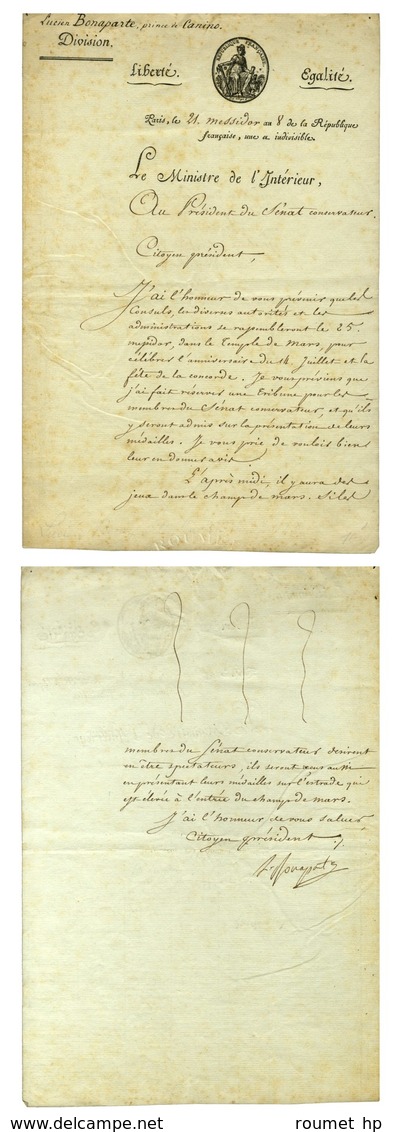 Lucien Bonaparte, prince de Canino.
Division.
RÉPUBLIQUE FRANÇAISE
Liberté. Egalité.
Paris, le 21. messidor an 8 de la République
française, une et indivisible.
Le Ministre de l'Intérieur,
Au Président du Sénat conservateur.
Citoyen président,
J'ai l'honneur de vous prévenir que les
Consuls, les diverses autorités et les
administrations se rassembleront le 25.
messidor, dans le Temple de Mars, pour
célébrer l'anniversaire du 14. Juillet et la
fête de la concorde. Je vous préviens que
j'ai fait réserver une Tribune pour les
membres du Sénat conservateur, et qu'ils
y seront admis sur la présentation de leurs
médailles. Je vous prie de vouloir bien
leur en donner avis.
L'après midi, il y aura des
jeux dans le champ de mars. Si les
membres du Sénat conservateur desirent
en être spectateurs, ils seront
en présentant leurs médailles sur l'estrade qui
est élevée à l'entrée du champ de mars.
J'ai l'honneur de vous saluer
Citoyen président
L. Bonaparte
www.delcampe.net roumet hp